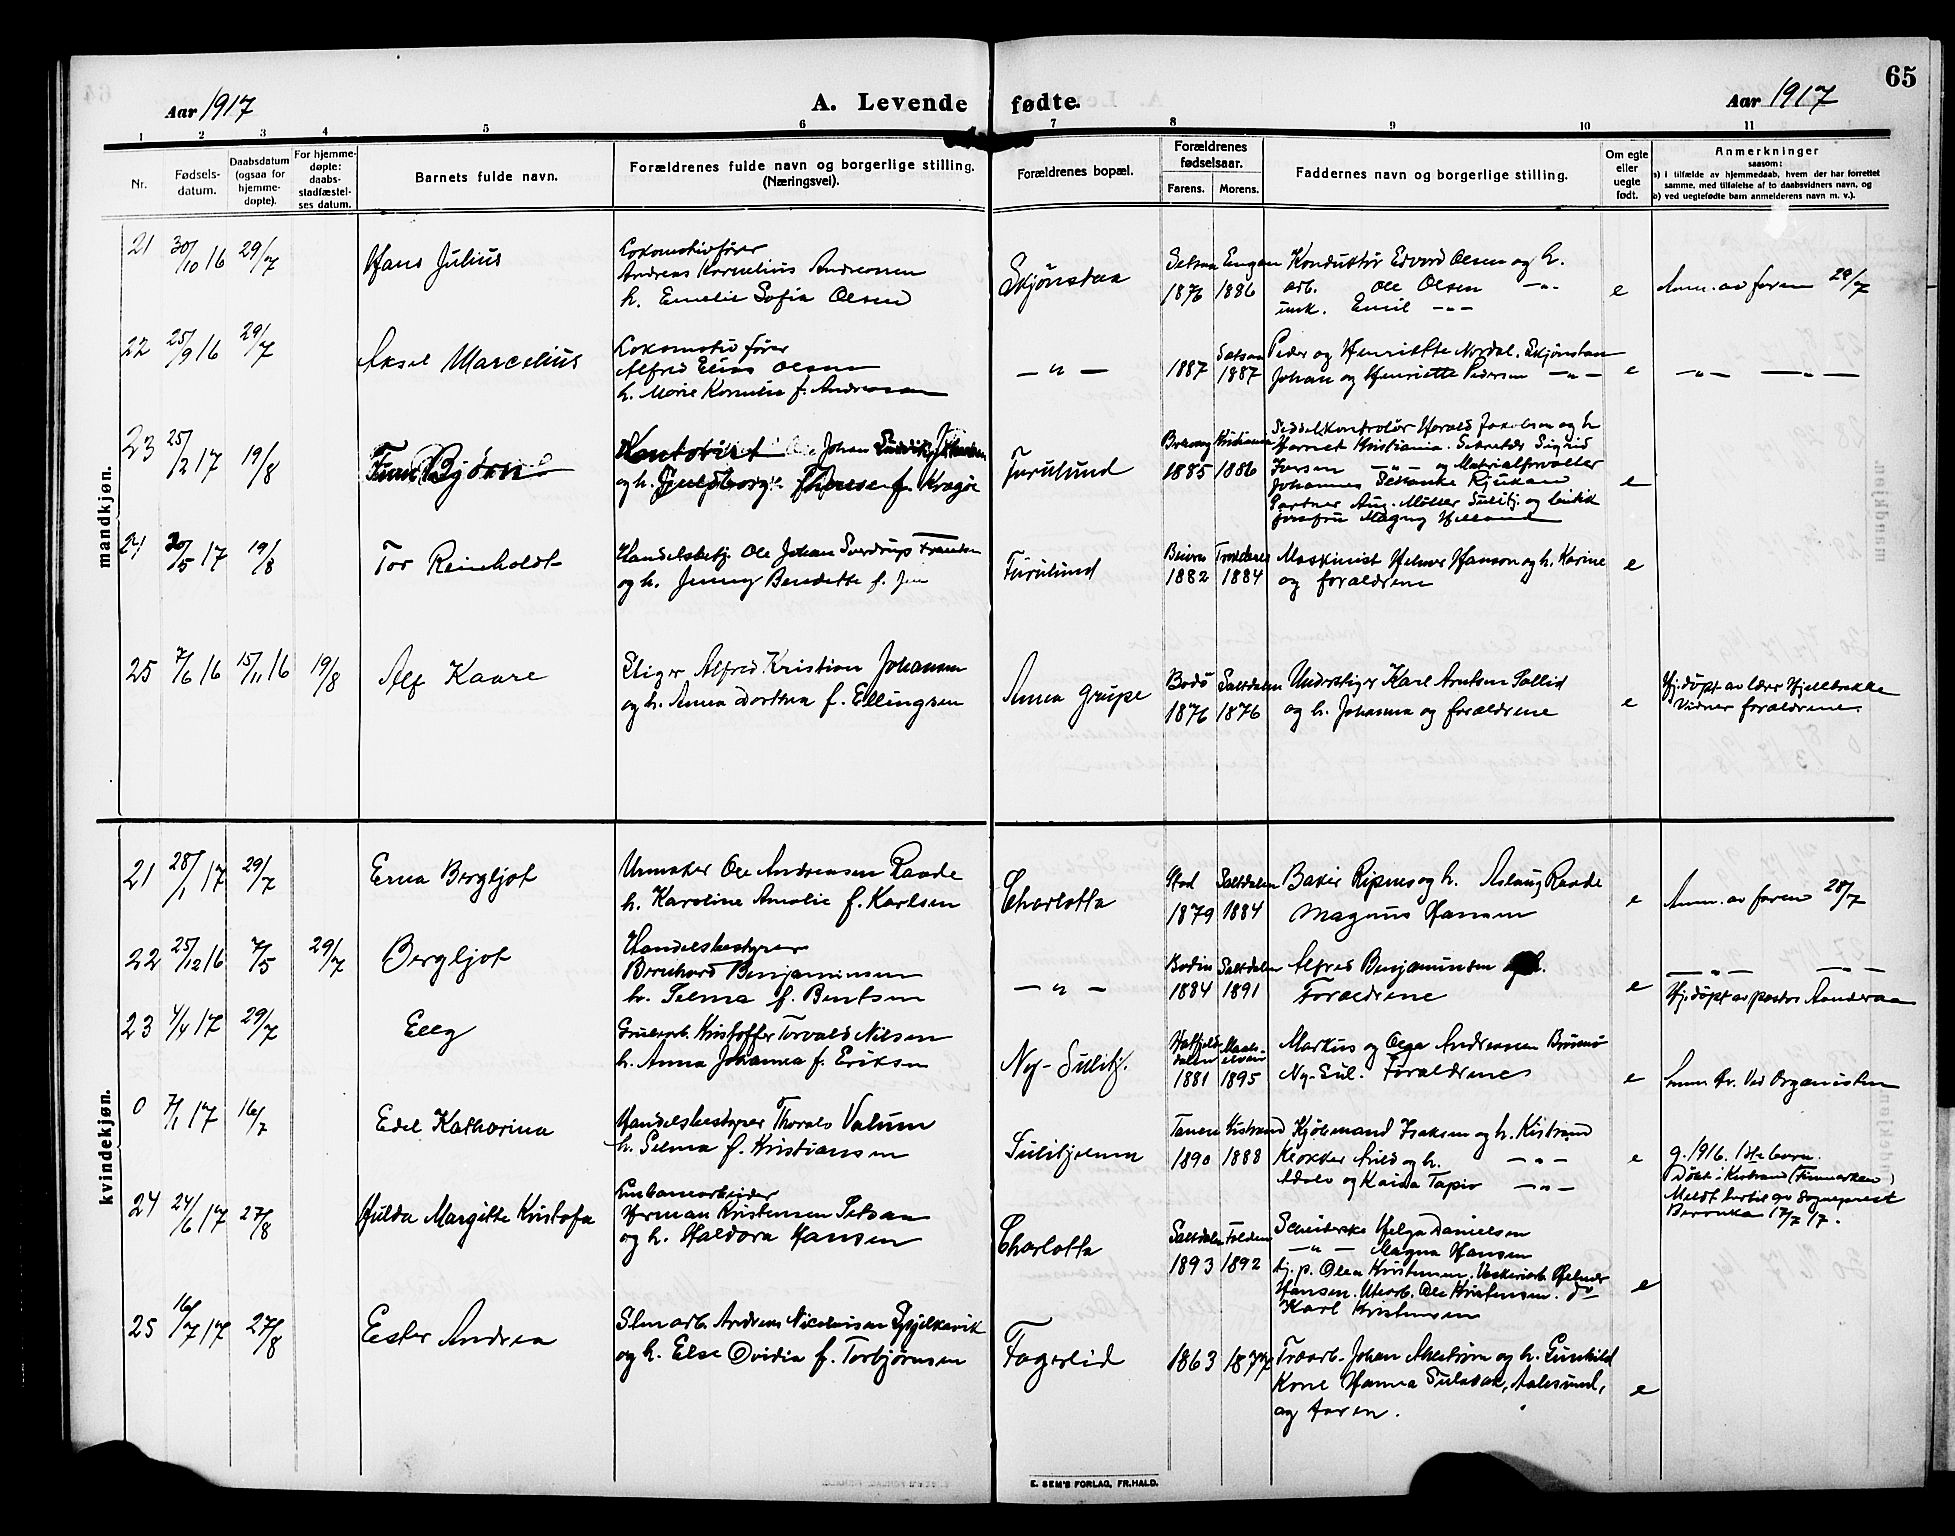 65
Aar 1917
A. Levende fødte.
Aar 1917
1 2 3 4 5 6 7 8 9 10 11
Nr.
Fødsels-
datum.
Daabsdatum
(ogsaa for
hjemme-
døpte).
For hjemme-
døpte:
daabs-
stadfæstel-
ses datum.
Barnets fulde navn.
Forældrenes fulde navn og borgerlige stilling.
(Næringsvei).
Forældrenes bopæl.
Forældrenes
fødselsaar.
Farens. Morens.
Faddernes navn og borgerlige stilling.
Om egte
eller
uegte
født.
Anmerkninger
saasom:
a) i tilfælde av hjemmedaab, hvem der har forrettet
samme, med tilføielse af to daabsvidners navn, og
b) ved uegtefødte barn anmelderens navn m. v.).
mandkjøn.
21 30/10 16 29/7 Hans Julius
Lokomotivfører
Andreas Kornelius Andreassen
h. Emelie Sofia Olsen
Skjønstaa
Setsaa 1876
Engan 1886
Konduktør Edvard Olsen og h.
arb. Ole Olsen —"—
unk. Emil —"—
e
Anm. av faren 28/7
22 25/9 16 29/7 Aksel Marcelius
Lokomotivfører
Alfred Elias Olsen
h. Marie Kornelie f. Andreassen
— " —
1887
Setsaa 1887
Peder og Henriette Nordal, Skjønstaa
Johan og Henriette Pedersen —"—
e
—"— —"—
23 25/2 17 19/8 Finn Bjørn
Kontorist Johan
og h. Therese f. Kragøe
Furulund
1885
Kristiania 1886
Seddelkontrolør Harald Jakobsen og h.
Harriet Kristiania. Sekretær Sigrid
Iversen —"— og Materialforvalter
Johannes Rjukan
Gartner Aug. Møller Sulitj. og
Magny
e
24 30/5 17 19/8 Tor Reinholdt
Handelsbetj. Ole Johan Sverdrup Frantsen
og h. Jenny Bendette f.
Furulund
Beiern 1882
1884
Maskinist Helmer Hanson og h. Karine
og forældrene
e
25 7/6 16 15/11 16 19/8 Alf Kaare
Stiger Alfred Kristian Johansen
og h. Anna Dorthea f. Ellingsen
Anna Grupe
Bodø 1876
Saltdalen 1876
Understiger Karl Arntsen Sollid
og h. Johanna og forældrene
e
Hj. døpt av lærer Hjellbække
Vidner forældrene.
kvindekjøn.
21 28/1 17 29/7 Erna Bergljot
Urmaker Ole Andreasen Raade
h. Karoline Amalie f. Karlsen
Charlotta
Stod 1879
Saltdalen 1884
Baker Ripnes og h. Aslaug Raade
Magnus Hansen
e
Anm. av faren 28/7
22 25/12 16 7/5 29/7 Bergljot
Handelsbestyrer
Bernhard Benjaminsen
h. Selma f. Bentsen
— " —
Bodin 1884
Saltdalen 1891
Alfred Benjaminsen og h.
Forældrene
e
—"— —"—
Hj. døpt av pastor Aanderaa
23 4/4 17 29/7 Elly
Grubearb. Kristoffer Torvald Nilsen
h. Anna Johanna f. Eriksen
Ny-Sulitj.
Hatfjelddalen 1881
1895
Markus og Olga Andreassen
Ny-Sul. Forældrene
e
Anm. fr. Ved Organisten
0 7/1 17 16/7 Edel Katharina
Handelsbestyrer Thorals Valum
h. Selma f. Kristiansen
Sulitjelma
Tanen 1890
Kistrand 1888
Kjøbmand Isaksen og h. Kistrand
Klokker og h. —"—
Adolv og Kaisa Tapio —"—
e
g. 1916. 1ste barn.
Døbt i Kistrand (Finmarken)
Meldt hertil av Sogneprest
Beronka 17/7 17.
24 24/6 17 27/8 Hulda Margitte Kristofa
Linbanearbeider
Herman Kristensen Setsaa
og h. Haldora Hansen
Charlotta
Saltdalen 1893
Folden 1892
Skeiderske Helga Danielsen
—"— Magna Hansen
tj. p. Olea Kristensen. Vaskeriarb. Hjelmar
Hansen. Utearb. Ole Kristensen. do
Karl Kristensen
e
25 16/7 17 27/8 Ester Andrea
Stenarb. Andreas Nicolaisen Spjelkavik
og h. Else Ovidia f. Torbjørnsen
Fagerlid
1863
1877
Traarb. Johan Ahlstrøm og h. Gunhild
Kone Hanna Sulebak, Aalesund,
og faren.
e
E. SEM'S FORLAG, FR.HALD.